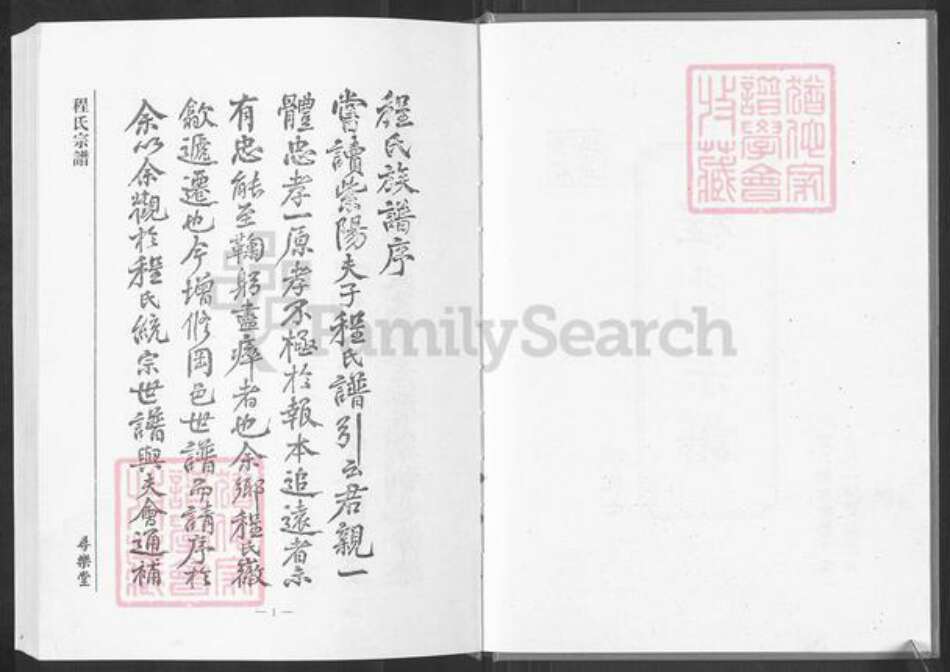 程氏族譜序
嘗讀紫陽夫子程氏譜引云君親一
體忠孝一原孝不極於報本追遠者亦
有忠能至鞠躬盡瘁者也余鄉程氏徽
歙遞遷也今增修岡邑世譜而請序於
余以余觀於程氏統宗世譜與夫會通補
程氏宗譜
尋樂堂
—1—
FamilySearch
譜學會
收藏